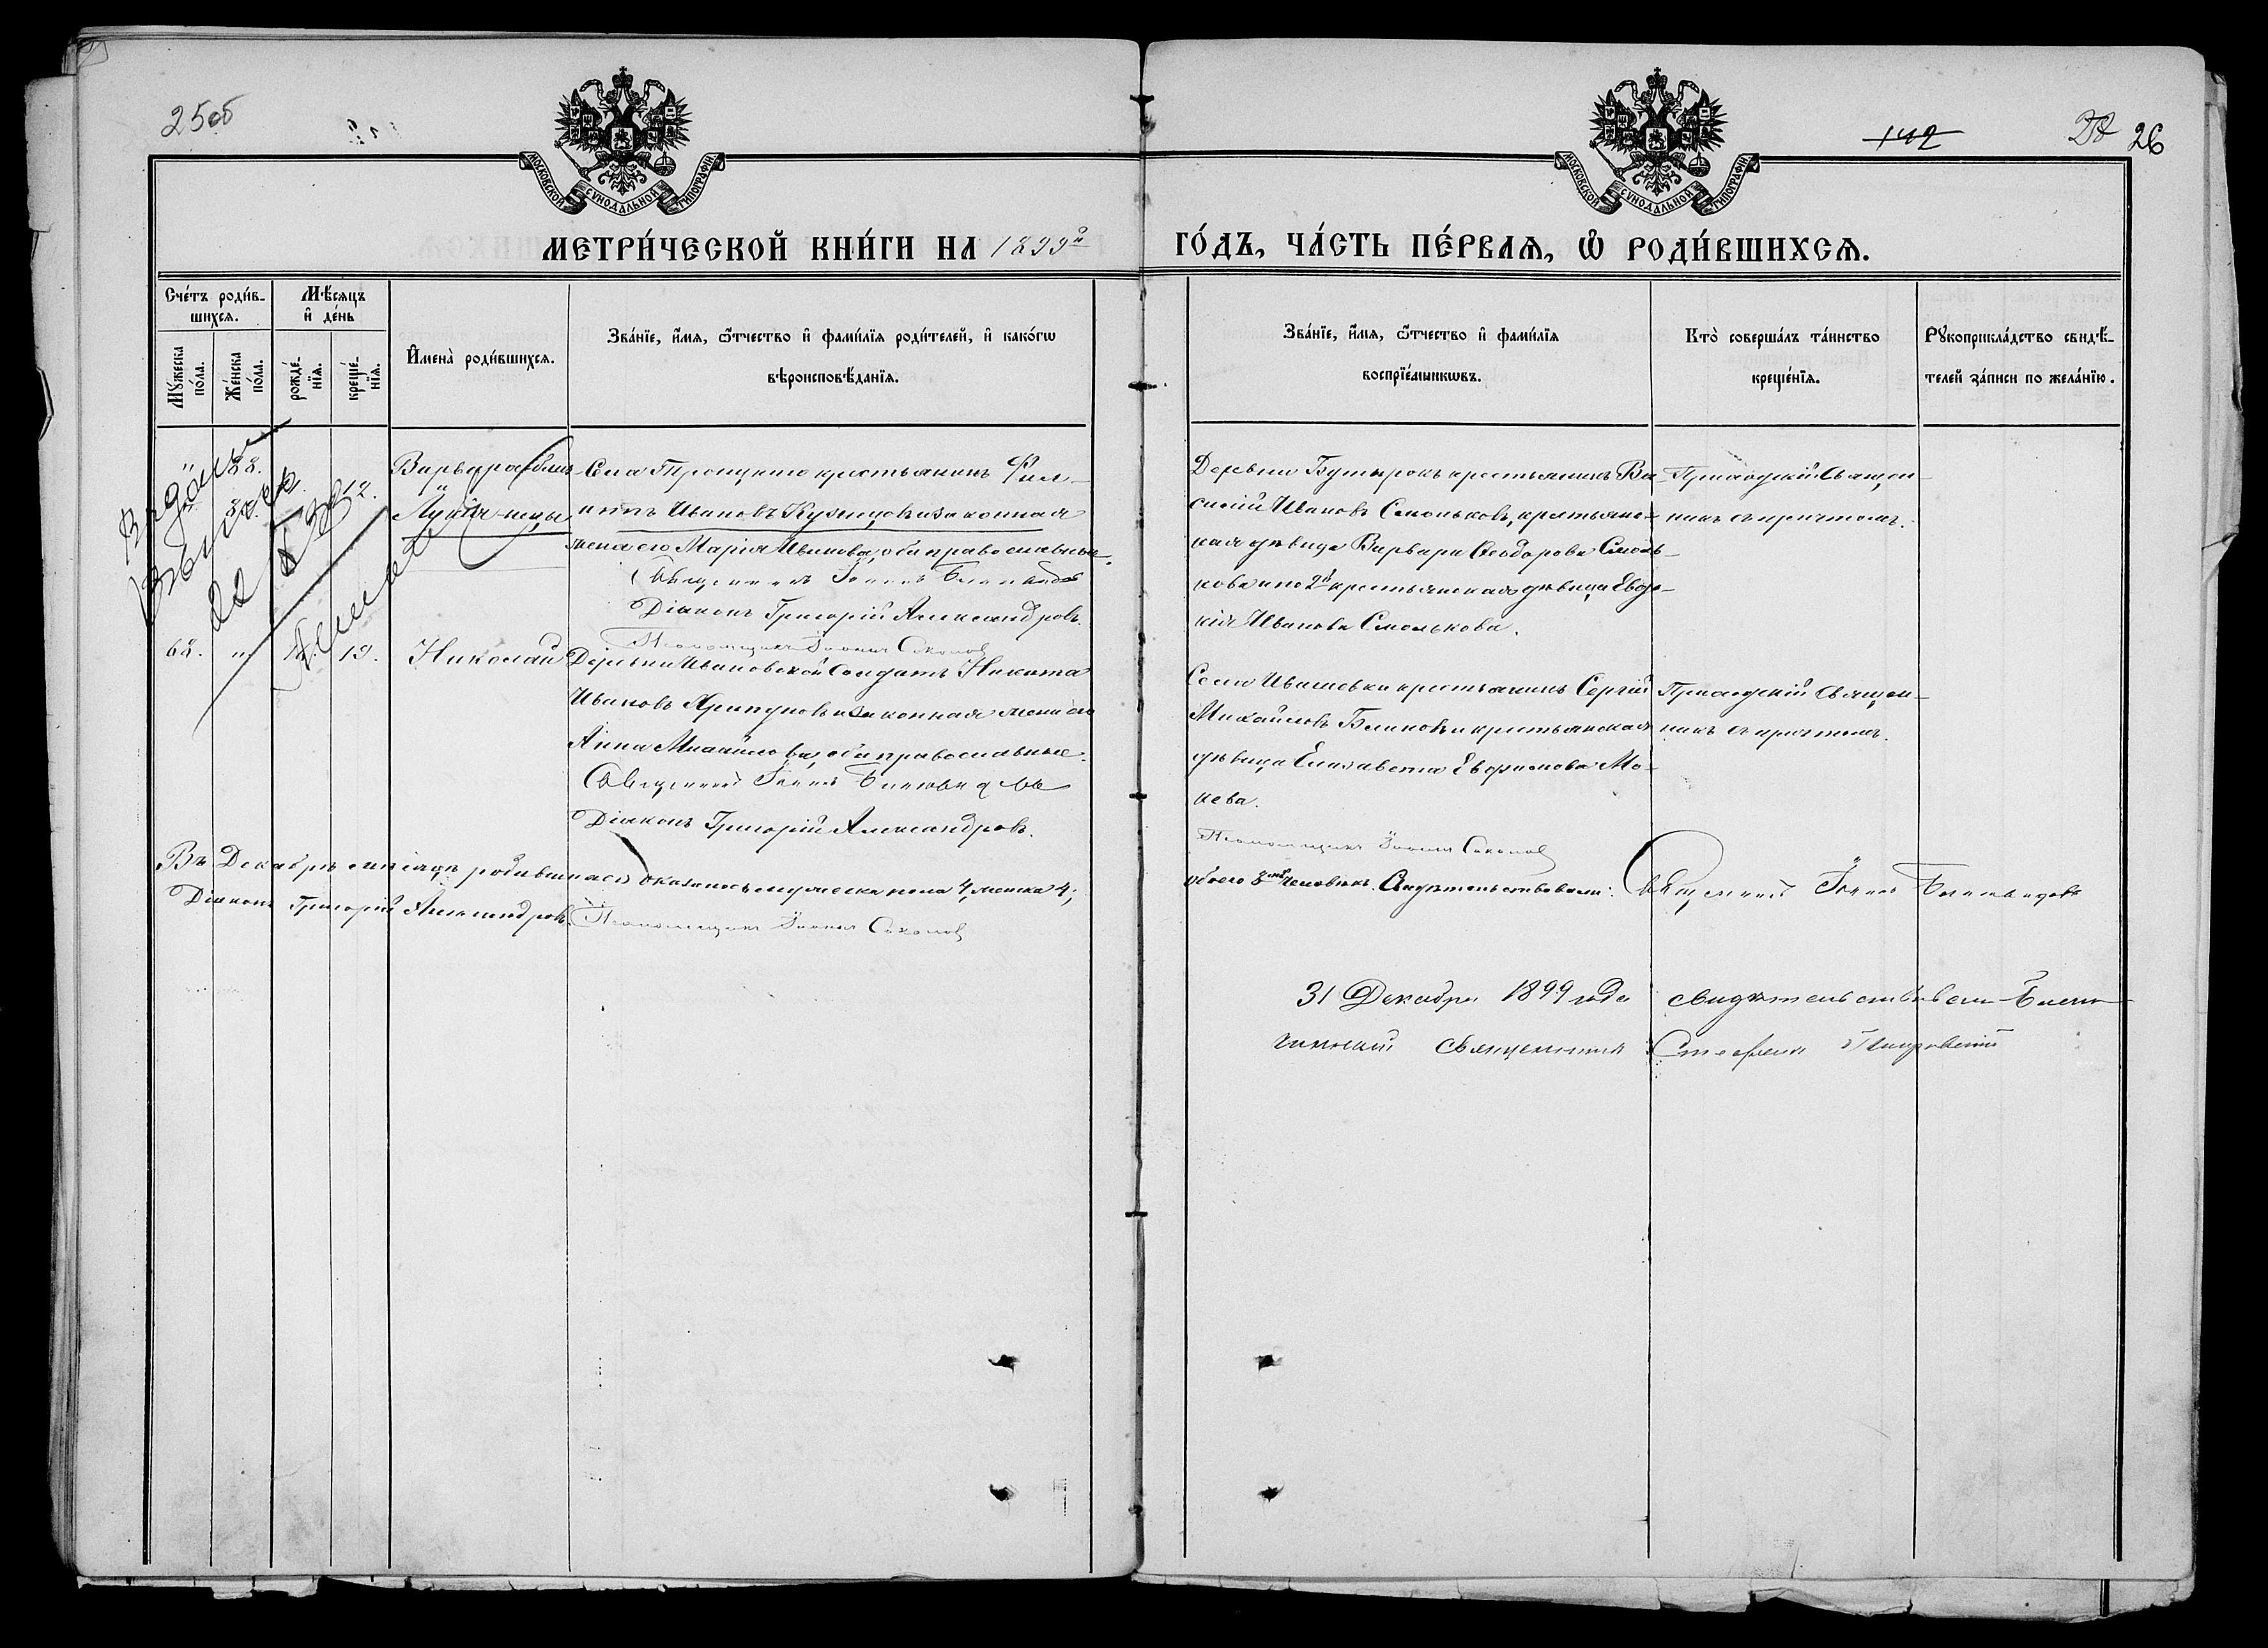 25об
142
26
МОСКОВСКОЙ СѴНОДАЛЬНОЙ ТИПОГРАФІИ
МОСКОВСКОЙ СѴНОДАЛЬНОЙ ТИПОГРАФІИ
МЕТРИ́ЧЕСКОЙ КНИ́ГИ НА 1899й
ГО́ДЪ, ЧА́СТЬ ПЕ́РВАѦ, Ѡ҆ РОДИ́ВШИХСѦ.
Сче́тъ роди́в-
шихсѧ.
Мѣ́сѧцъ
и҆ де́нь
Мꙋ́жеска
по́ла.
Же́нска
по́ла.
рожде́-
нїѧ.
креще́-
нїѧ.
И҆мена̀ роди́вшихсѧ.
Зва́нїе, и҆́мѧ, ѻ҆́тчество и҆ фами́лїѧ роди́телей, и҆ како́гѡ
вѣроисповѣ́данїѧ.
Зва́нїе, и҆́мѧ, ѻ҆́тчество и҆ фами́лїѧ
воспрїе́мникѡвъ.
Кто̀ соверша́лъ та́инство
креще́нїѧ.
Рꙋкоприкла́дство свидѣ́-
телей за́писи по жела́нїю.
Варвара близ-
Лукія нецы
12.
Села Троицкаго крестьянинъ Фил-
иппъ Ивановъ Кузнецовъ и законная
жена его Марія Иванова, оба православные.
Священникъ Іоаннъ
Діаконъ Григорій Александровъ.
Псаломщикъ Іоаннъ Соколовъ
Деревни Бутырокъ крестьянинъ Ва-
силій Ивановъ Смольковъ, крестьянс-
кая дѣвица Варвара Ѳеодорова Смоль-
кова и по 2й крестьянская дѣвица Евдо-
кія Иванова Смолькова.
Приходскій Священ-
никъ съ причтомъ.
Выдана
выпись
68. " 19.
Николай
Деревни Ивановской Солдатъ Никита
Ивановъ Хрипуновъ и законная жена его
Анна Михайлова, оба православные.
Священникъ Іоаннъ
Діаконъ Григорій Александровъ.
Села Ивашевки крестьянинъ Сергій
Михайловъ Блиновъ и крестьянская
дѣвица Елизавета Евфимова Мо-
кева.
Псаломщикъ Іоаннъ Соколовъ
Приходскій Священ-
никъ съ причтомъ.
Въ Декабрѣ мѣсяцѣ родившихся оказалось мужеска пола 4, женска 4;
обоего 8мь человѣкъ. Свидѣтельствовали: Священникъ Іоаннъ
Діаконъ Григорій Александровъ. Псаломщикъ Іоаннъ Соколовъ
31 Декабря 1899 года свидѣтельствовалъ Благо-
чинный Священникъ Стефанъ